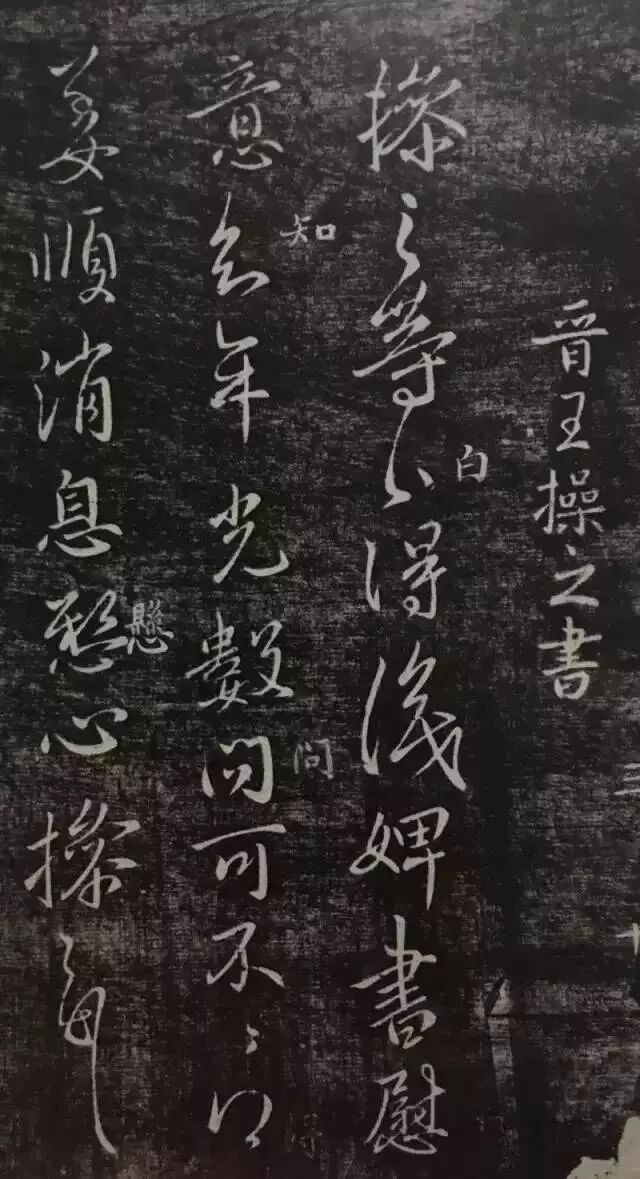 晉王操之書
操之等白得識婢書慰
白
意知年光數問可不〻
知
問
姜順消息懸心操
懸